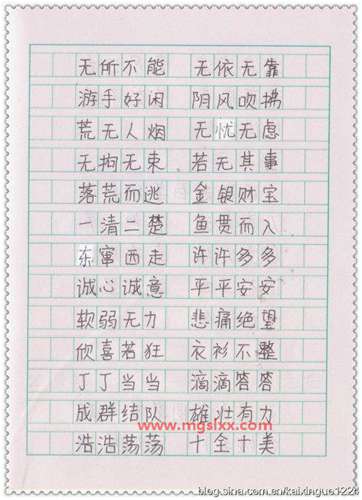 无所不能 无依无靠
游手好闲 阴风吹拂
荒无人烟 无忧无虑
无拘无束 若无其事
落荒而逃 金银财宝
一清二楚 鱼贯而入
东窜西走 许许多多
诚心诚意 平平安安
软弱无力 悲痛绝望
欣喜若狂 衣衫不整
丁丁当当 滴滴答答
成群结队 雄壮有力
www.mgslxx.com
浩浩荡荡 十全十美
blog.sina.com.cn/kaixingue1224